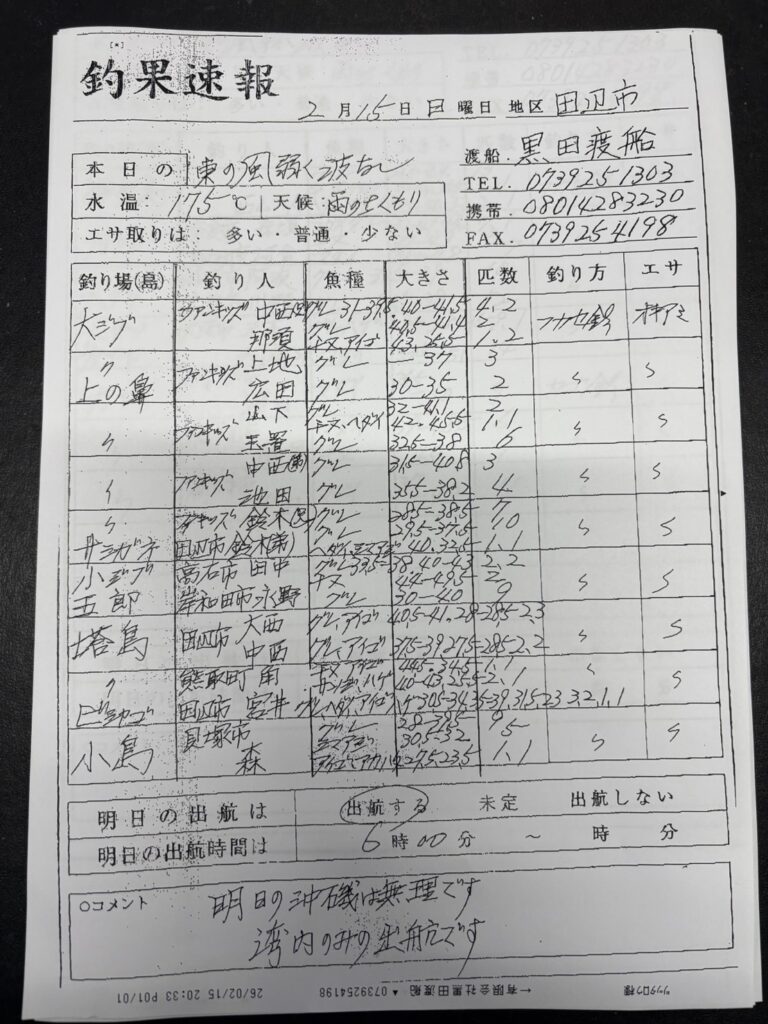 釣果速報
2月15日日曜日 地区 田辺市
渡船. 黒田渡船
本日の 東の風弱く波なし
TEL. 0739251303
水温: 17.5℃ 天候: 雨のちくもり
携帯. 08014283230
エサ取りは: 多い・普通・少ない
FAX. 0739254198
釣り場(島) 釣り人 魚種 大きさ 匹数 釣り方 エサ
大ジブ ファンキッズ 中西 グレ 31-39.5. 40-41.5 4.2
那須 グレ 2 フカセ釣 オキアミ
チヌ、アイゴ 43.25.5 1.2
〃 ファンキッズ 上地 グレ -37 3
上の鼻 広田 グレ 30-35 2 〃 〃
ファンキッズ 山下 グレ 2
〃 チヌ、ヘダイ 42.45.5 1.1 〃 〃
グレ 32.5-38 6
ファンキッズ 中西(弟) グレ 31.5-40.8 3
池田 グレ 35.5-38.2 4 〃 〃
〃 ファンキッズ 鈴木(兄) グレ 28.5-38.5 7
グレ 29.5-37.5 10 〃 〃
サシガネ 田辺市 鈴木(弟) 40.32.5 1.1
小ジブ 高石市 田中 グレ 33.5-38 40-43 2.2
チヌ 44-49.5 2 〃 〃
五郎 岸和田市 永野 グレ 30-40 9
塔島 田辺市 大西 グレ、アイゴ 40.5-41.28-28.5 2.3
中西 グレ、アイゴ 37.5-39 27.5-28.5 2.2 〃 〃
〃 熊取町 角 チヌ、アイゴ 44.5.34.5 1.1
40-43.5 2.1 〃 〃
ビシャゴ 田辺市 宮井 グレ、ヘダイ、アイゴ
小島 貝塚市 グレ 28-39.5 9
30.5-32 5 〃 〃
森 27.5.23.5 1.1
明日の出航は 出航する 未定 出航しない
明日の出航時間は 6時00分 ~ 時 分
○コメント 明日の沖磯は無理です
湾内のみの出航です
26/02/15 20:33 P01/01 ▲ 0739254198 ←有限会社黒田渡船